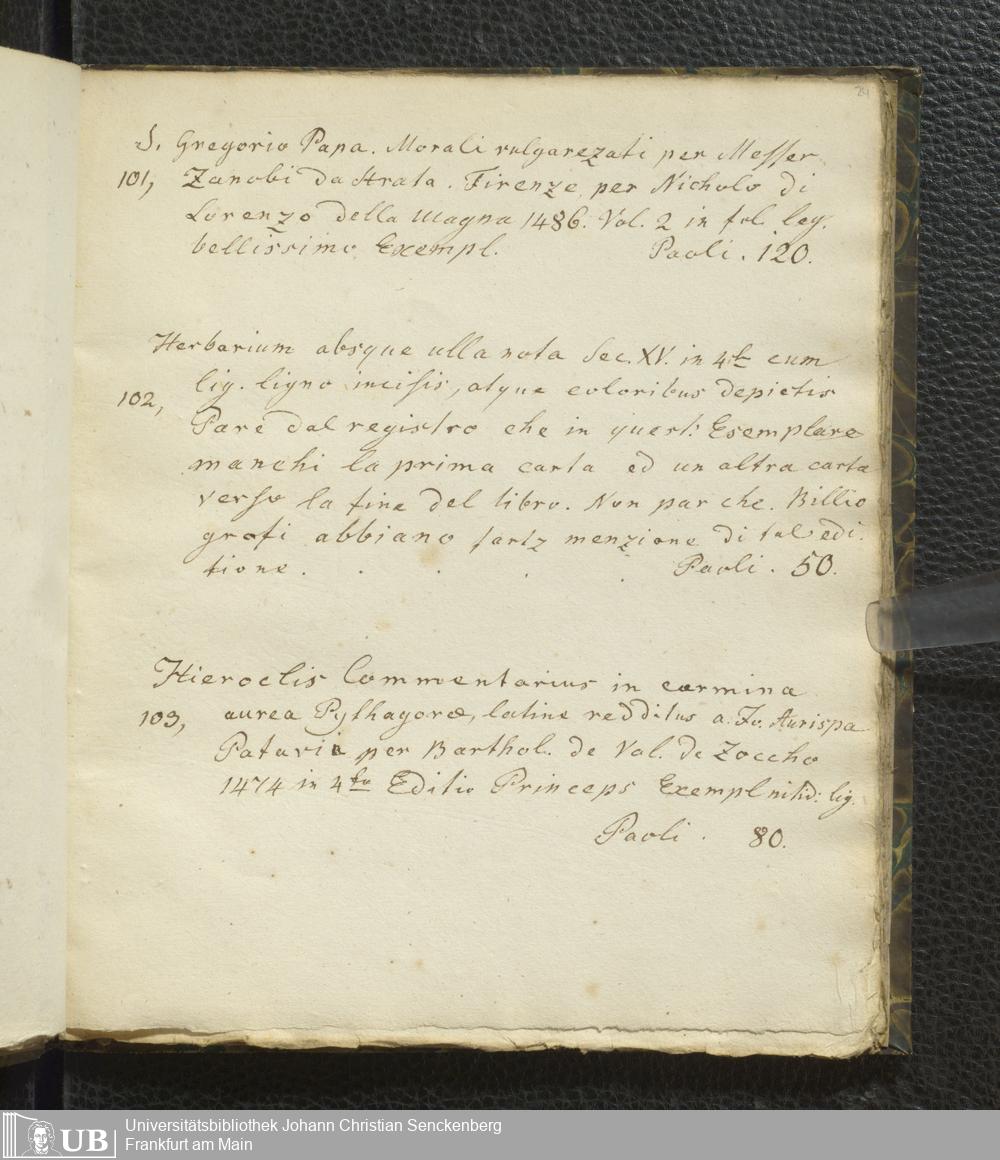 24
S. Gregorio Papa. Morali vulgarezati per Messer
101, Zanobi da Strata. Firenze per Nicholo di
Lorenzo della Magna 1486. Vol. 2 in fol. leg.
bellissimo Exempl. Paoli. 120.
Herbarium absque ulla nota Sec. XV. in 4to cum
fig. ligno incisis, atque coloribus depictis
102, Pare dal registro che in quest: Esemplare
manchi la prima carta ed un altra carta
verso la fine del libro. Non par che. Billio
grafi abbiano menzione di tal edi.
tione. . . . . Paoli. 50.
Hieroclis Commentarius in carmina
103, aurea Pythagoræ, latine redditus a. Jo. Aurispa
Patavii per Barthol. de Val. de Zoccho
1474 in 4to Editio Princeps Exempl nitid: lig.
Paoli. 80.
UB Universitätsbibliothek Johann Christian Senckenberg
Frankfurt am Main